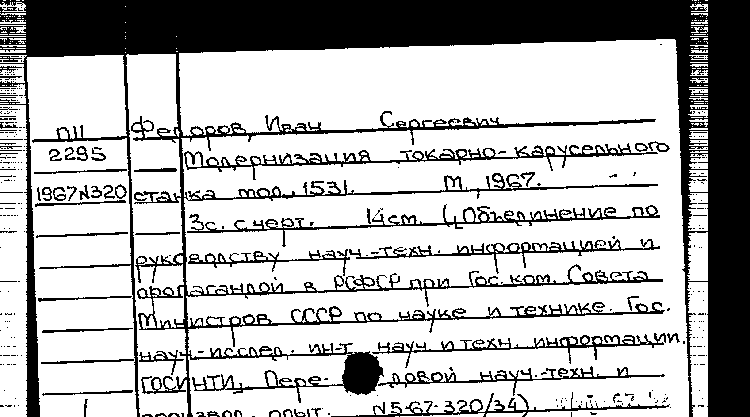 П11 Федоров, Иван Сергеевич
2295 Модернизация токарно-карусельного
1967№320 станка мод. 1531. М., 1967.
3с. с черт. 14см. (Объединение по
руководству науч.-техн. информацией и
пропагандой в РСФСР при Гос. ком. Совета
Министров СССР по науке и технике. Гос.
науч.-исслед. ин-т науч. и техн. информации.
ГОСИНТИ, Пере- довой науч.-техн. и
производ. опыт. №5-67-320/34).